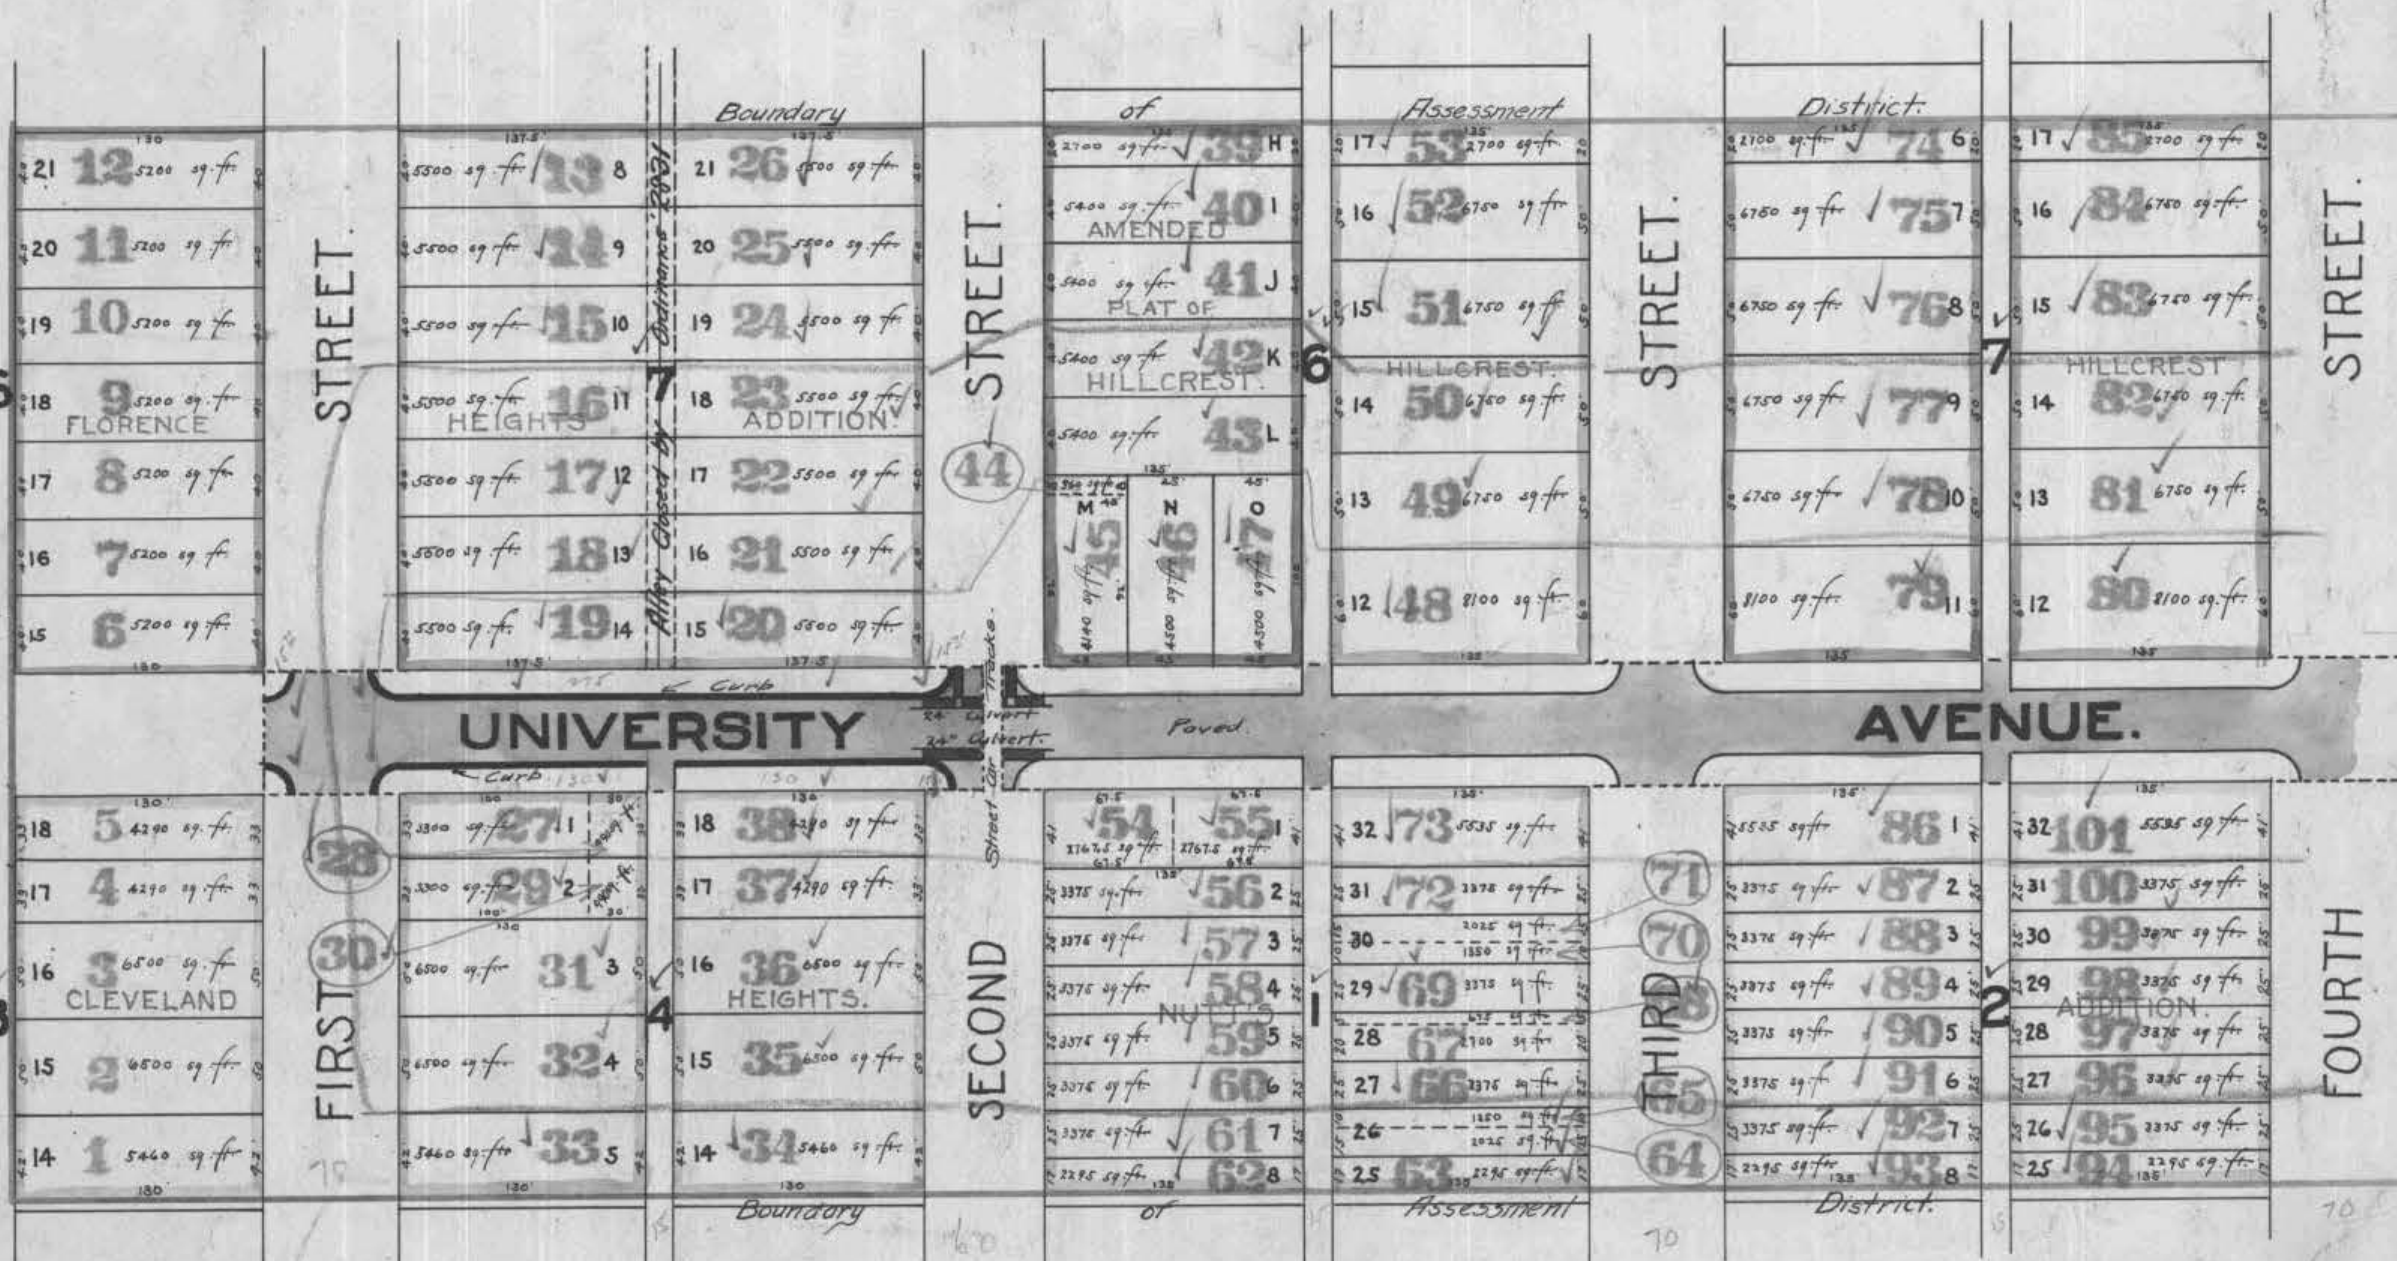 Boundary of Assessment District.
130
21 12 5200 sq. ft.
20 11 5200 sq ft
19 10 5200 sq ft
18 9 5200 sq. ft.
FLORENCE
17 8 5200 sq ft
16 7 5200 sq ft.
15 6 5200 sq. ft.
130
STREET.
137.5'
5500 sq. ft 13 8
5500 sq ft. 14 9
5500 sq ft 15 10
5500 sq. ft. 16 11
HEIGHTS
5500 sq. ft. 17 12
5500 sq. ft. 18 13
5500 sq. ft. 19 14
137.5'
Alley Closed by Ordinance 2931
7
137.5'
21 26 5500 sq. ft.
20 25 5500 sq. ft.
19 24 5500 sq ft.
18 23 5500 sq ft.
ADDITION.
17 22 5500 sq ft
16 21 5500 sq ft.
15 20 5500 sq. ft.
137.5
STREET.
44
135
2700 sq. ft. 39 H
5400 sq. ft. 40 I
AMENDED
5400 sq ft. 41 J
PLAT OF
5400 sq ft 42 K
HILLCREST.
5400 sq. ft. 43 L
135'
360 sq ft
45'
M 45 4140 sq ft
N 46 4500 sq. ft.
O 47 4500 sq ft
6
135
17 53 2700 sq. ft.
16 52 6750 sq ft
15 51 6750 sq ft
HILLCREST.
14 50 6750 sq. ft.
13 49 6750 sq ft
12 48 8100 sq. ft.
135
STREET.
135
2700 sq. ft. 74 6
6750 sq ft 75 7
6750 sq ft. 76 8
6750 sq ft. 77 9
6750 sq. ft. 78 10
8100 sq. ft. 79 11
135
7
135
17 85 2700 sq. ft.
16 84 6750 sq. ft.
15 83 6750 sq ft.
HILLCREST
14 82 6750 sq. ft.
13 81 6750 sq ft.
12 80 8100 sq. ft.
135
STREET.
Curb
UNIVERSITY
24" Culvert
24" Culvert.
Street Car Tracks.
Paved.
AVENUE.
Curb
130
130
130'
18 5 4290 sq. ft.
17 4 4290 sq. ft.
16 3 6500 sq. ft
CLEVELAND
15 2 6500 sq ft.
14 1 5460 sq ft
130
28
30
FIRST
100
30
3300 sq. ft. 27 1
3300 sq. ft. 29 2
100'
30'
130
6500 sq. ft 31 3
6500 sq ft 32 4
5460 sq ft 33 5
130'
4
130
18 38 4290 sq ft
17 37 4290 sq. ft.
16 36 6500 sq ft
HEIGHTS.
15 35 6500 sq ft
14 34 5460 sq. ft.
130
SECOND
67.5
67.5
54 55 1
2767.5 sq ft
2767.5 sq ft.
67.5
67.5
135
3375 sq. ft. 56 2
3375 sq. ft. 57 3
3375 sq ft. 58 4
NUTT'S
3375 sq ft. 59 5
3375 sq ft 60 6
3375 sq. ft. 61 7
2295 sq. ft. 62 8
135
1
135
32 73 5535 sq. ft.
31 72 3375 sq ft
30
2025 sq ft.
1350 sq ft.
29 69 3375 sq ft.
675 sq ft
28 67 2700 sq ft
27 66 3375 sq ft
1350 sq ft
26
2025 sq. ft.
25 63 2295 sq ft.
135
71
70
68
65
64
THIRD
135'
5535 sq ft 86 1
3375 sq ft 87 2
3375 sq. ft. 88 3
3375 sq ft. 89 4
3375 sq ft. 90 5
3375 sq. ft. 91 6
3375 sq ft. 92 7
2295 sq ft. 93 8
135
2
135'
32 101 5535 sq ft.
31 100 3375 sq ft.
30 99 3375 sq. ft.
29 98 3375 sq ft.
ADDITION.
28 97 3375 sq ft
27 96 3375 sq. ft.
26 95 3375 sq. ft.
25 94 2295 sq. ft.
135'
FOURTH
Boundary of Assessment District.
70
70